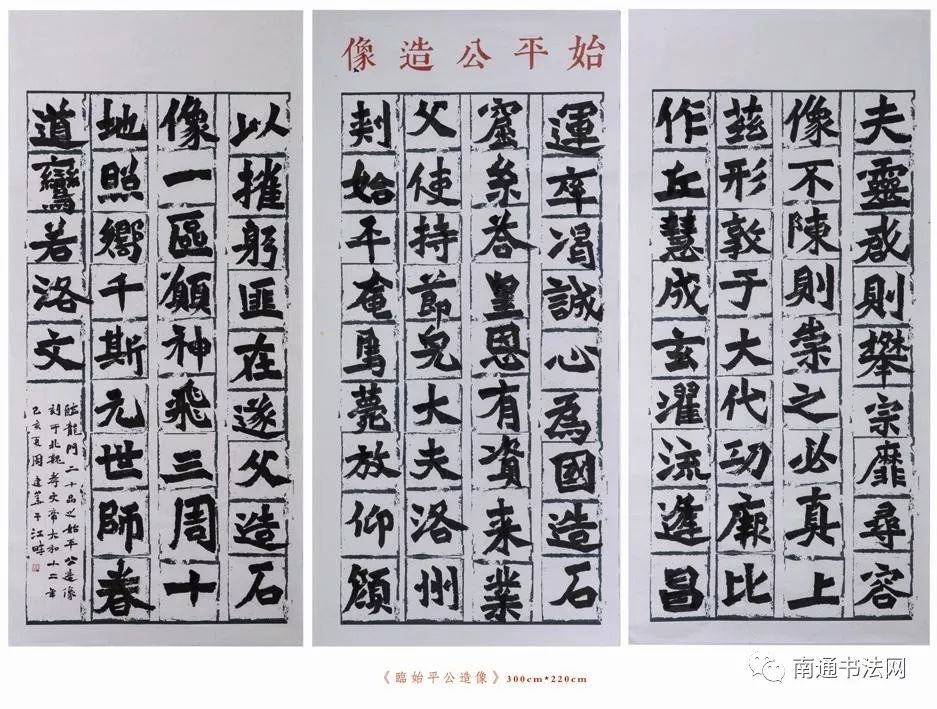 始平公造像
夫靈啟則攀宗靡尋容
像不陳則崇之必真上
茲形敷于大代功厥比
作丘慧成玄濯流逢昌
運率渴誠心為國造石
窟糸荅皇恩有資来業
父使持節光大夫洛州
刾始平奄焉薨放仰顔
以摧躬匪在遂父造石
像一區願神飛三周十
地照嚮千斯元世師春
道鸞若洛文
臨龍門二十品之始平公造像
刻于北魏孝文帝太和十二年
己亥夏周建于江畔
《臨始平公造像》300cm*220cm
南通书法网